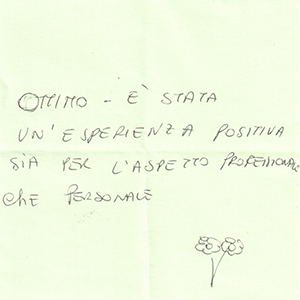 OTTIMO - È STATA
UN'ESPERIENZA POSITIVA
SIA PER L'ASPETTO PROFESSIONALE
CHE PERSONALE